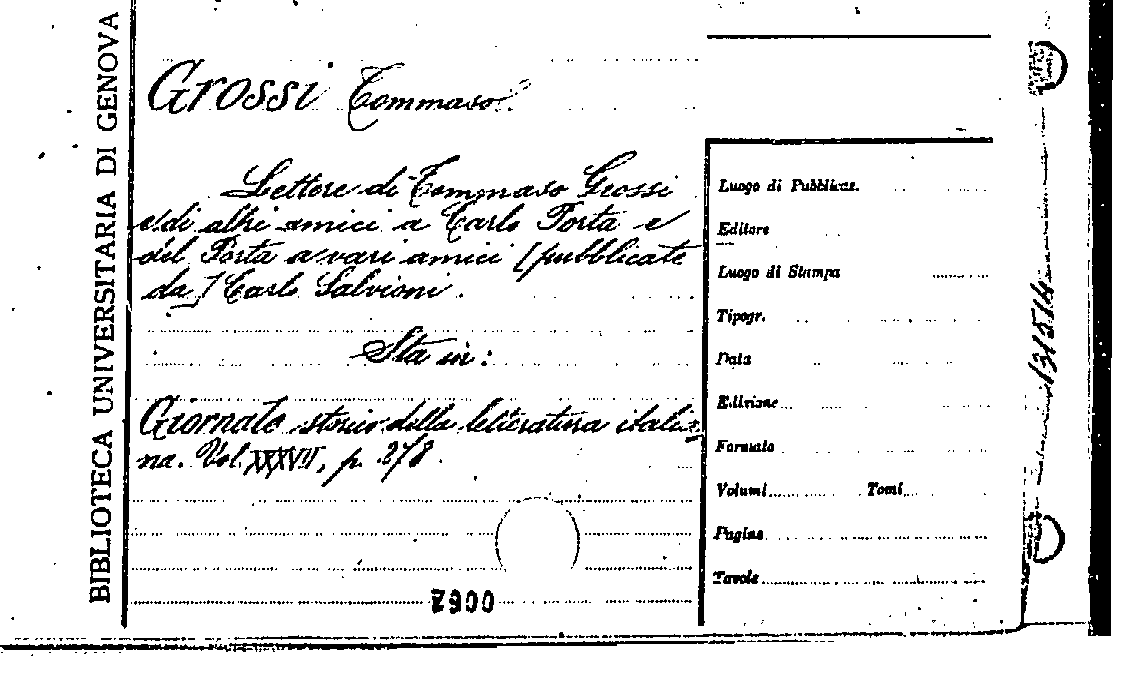 BIBLIOTECA UNIVERSITARIA DI GENOVA
Grossi Tommaso.
Lettere di Tommaso Grossi
e di altri amici a Carlo Porta e
del Porta a vari amici [pubblicate
da] Carlo Salvioni.
Sta in:
Giornale storico della letteratura italia
na. Vol. XXXVII, p. 278.
Luogo di Pubblicaz.
Editore
Luogo di Stampa
Tipogr.
Data
Edizione
Formato
Volumi Tomi
Pagine
Tavole